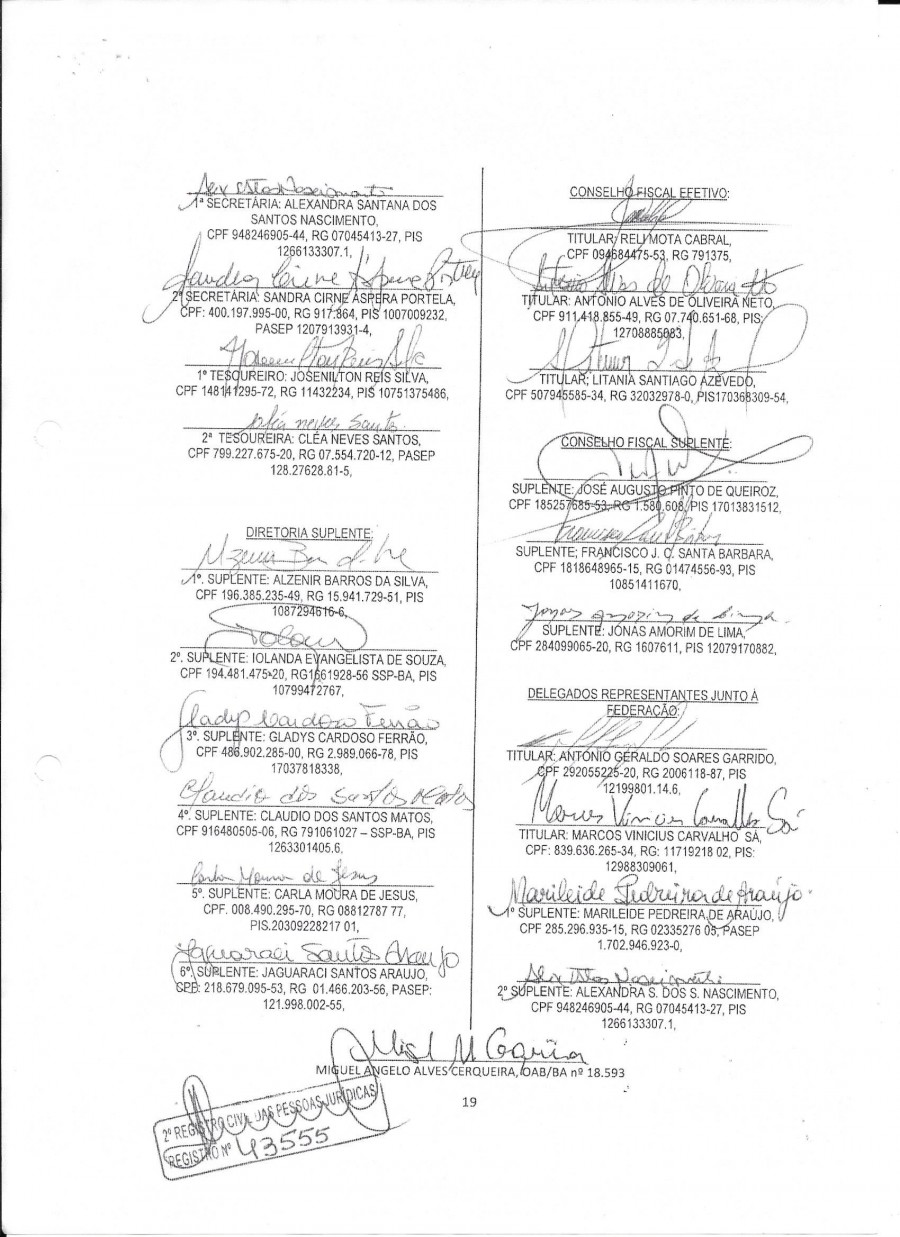 1ª SECRETÁRIA: ALEXANDRA SANTANA DOS
SANTOS NASCIMENTO,
CPF 948246905-44, RG 07045413-27, PIS
1266133307.1,
2ª SECRETÁRIA: SANDRA CIRNE ASPERA PORTELA,
CPF: 400.197.995-00, RG 917.864, PIS 1007009232,
PASEP 1207913931-4,
1º TESOUREIRO: JOSENILTON REIS SILVA,
CPF 148141295-72, RG 11432234, PIS 10751375486,
Cléa neves Santos
2ª TESOUREIRA: CLÉA NEVES SANTOS,
CPF 799.227.675-20, RG 07.554.720-12, PASEP
128.27628.81-5,
DIRETORIA SUPLENTE:
1º. SUPLENTE: ALZENIR BARROS DA SILVA,
CPF 196.385.235-49, RG 15.941.729-51, PIS
1087294616-6,
2º. SUPLENTE: IOLANDA EVANGELISTA DE SOUZA,
CPF 194.481.475-20, RG1661928-56 SSP-BA, PIS
10799472767,
Gladys Cardoso Ferrão
3º. SUPLENTE: GLADYS CARDOSO FERRÃO,
CPF 486.902.285-00, RG 2.989.066-78, PIS
17037818338,
Claudio dos Santos Matos
4º. SUPLENTE: CLAUDIO DOS SANTOS MATOS,
CPF 916480505-06, RG 791061027 – SSP-BA, PIS
1263301405.6,
Carla Moura de Jesus
5º. SUPLENTE: CARLA MOURA DE JESUS,
CPF. 008.490.295-70, RG 08812787 77,
PIS.20309228217 01,
Jaguaraci Santos Araujo
6º. SUPLENTE: JAGUARACI SANTOS ARAUJO,
CPB: 218.679.095-53, RG 01.466.203-56, PASEP:
121.998.002-55,
CONSELHO FISCAL EFETIVO:
TITULAR: RELI MOTA CABRAL,
CPF 094684475-53, RG 791375,
Antonio Alves de Oliveira Neto
TITULAR: ANTÔNIO ALVES DE OLIVEIRA NETO,
CPF 911.418.855-49, RG 07.740.651-68, PIS:
12708885083,
TITULAR; LITANIA SANTIAGO AZEVEDO,
CPF 507945585-34, RG 32032978-0, PIS170368309-54,
CONSELHO FISCAL SUPLENTE:
SUPLENTE: JOSÉ AUGUSTO PINTO DE QUEIROZ,
CPF 185257685-53, RG 1.580.608, PIS 17013831512,
SUPLENTE; FRANCISCO J. C. SANTA BARBARA,
CPF 1818648965-15, RG 01474556-93, PIS
10851411670,
Jonas Amorim de Lima
SUPLENTE: JONAS AMORIM DE LIMA,
CPF 284099065-20, RG 1607611, PIS 12079170882,
DELEGADOS REPRESENTANTES JUNTO À
FEDERAÇÃO:
TITULAR: ANTÔNIO GERALDO SOARES GARRIDO,
CPF 292055225-20, RG 2006118-87, PIS
12199801.14.6,
Marcos Vinicius Carvalho Sá
TITULAR: MARCOS VINICIUS CARVALHO SÁ,
CPF: 839.636.265-34, RG: 11719218 02, PIS:
12988309061,
Marileide Pedreira de Araújo
1º SUPLENTE: MARILEIDE PEDREIRA DE ARAÚJO,
CPF 285.296.935-15, RG 02335276 05, PASEP
1.702.946.923-0,
2º SUPLENTE: ALEXANDRA S. DOS S. NASCIMENTO,
CPF 948246905-44, RG 07045413-27, PIS
1266133307.1,
MIGUEL ANGELO ALVES CERQUEIRA, OAB/BA nº 18.593
19
2º REGISTRO CIVIL DAS PESSOAS JURÍDICAS
REGISTRO Nº 43555